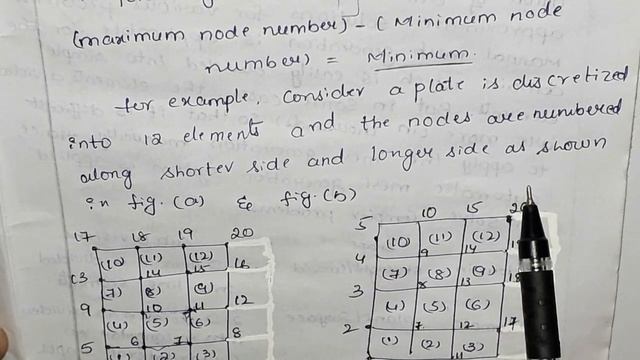 (maximum node number) - (Minimum node
number) = Minimum.
for example, Consider a plate is discretized
into 12 elements and the nodes are numbered
along shorter side and longer side as shown
in fig. (a) & fig. (b)
17 18 19 20
(10) (11) (12)
13 14 15 16
(7) (8) (9)
9 10 11 12
(4) (5) (6)
5 6 7 8
(1) (2) (3)
5 10 15
(10) (11) (12)
4 9 14
(7) (8) (9)
3 8 13
(4) (5) (6)
2 7 12 17
(1) (2) (3)
11